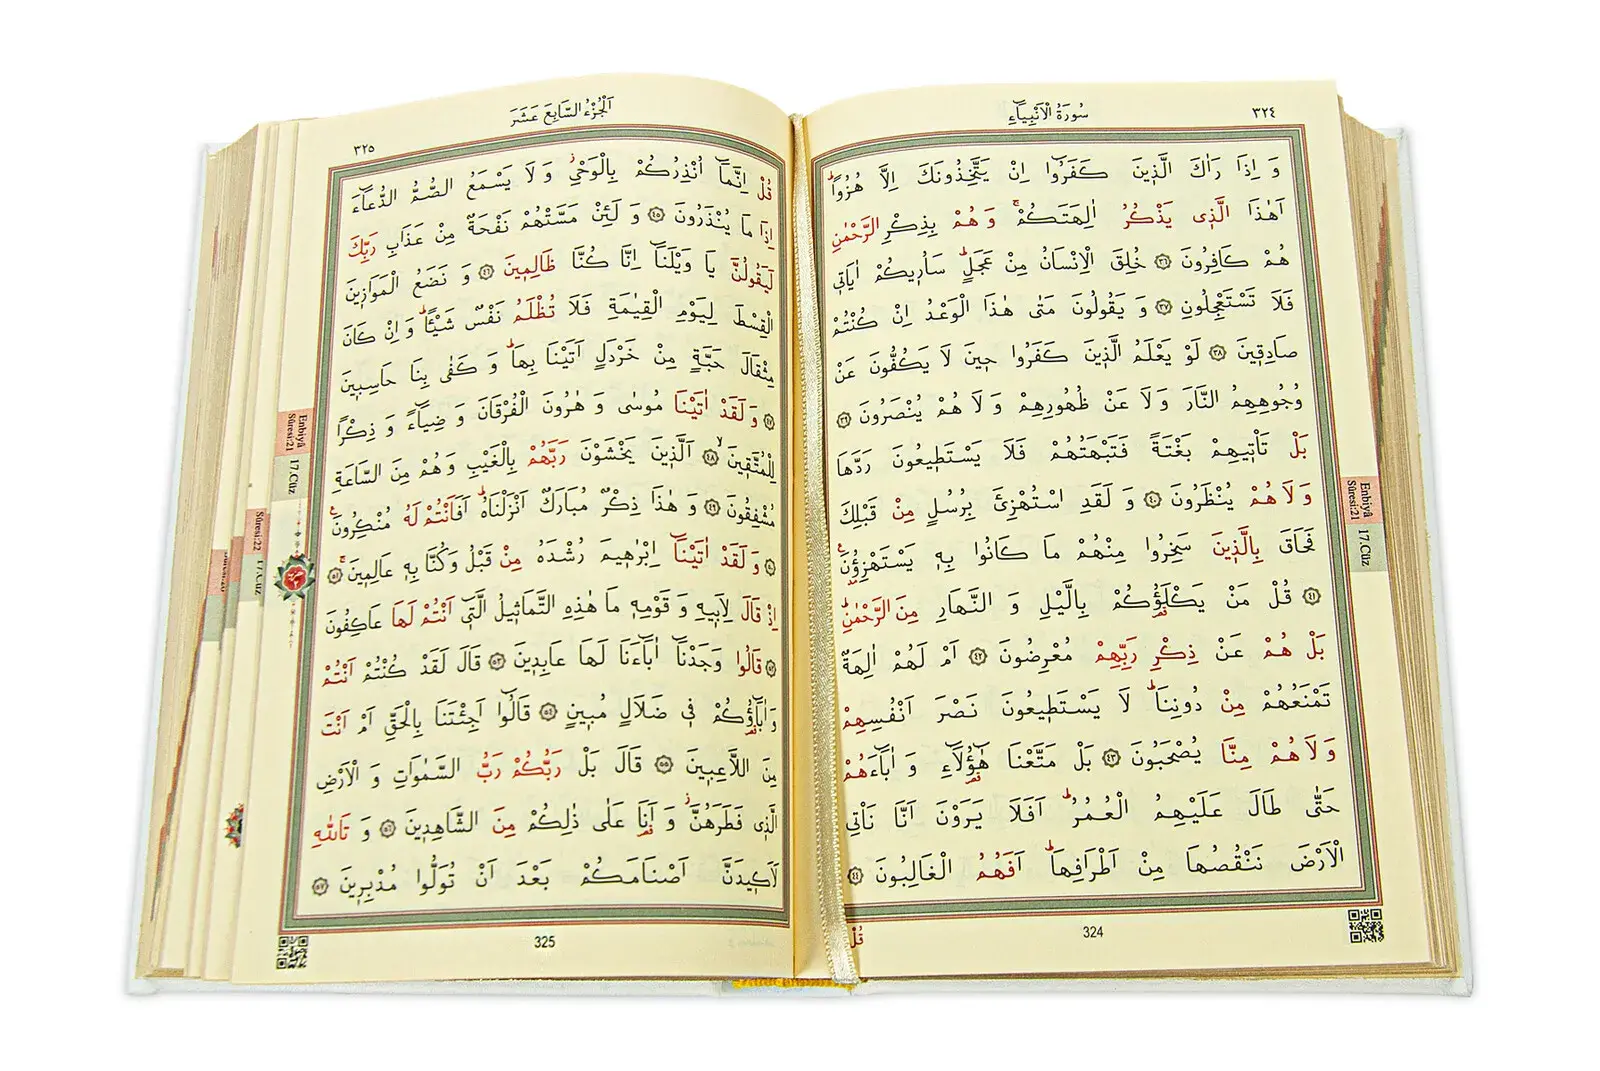 ٣٢٤
سُورَةُ الْاَنْبِيَاءِ
وَ اِذَا رَاٰكَ الَّذٖينَ كَفَرُٓوا اِنْ يَتَّخِذُونَكَ اِلَّا هُزُواًؕ
اَهٰذَا الَّذٖى يَذْكُرُ اٰلِهَتَكُمْۚ وَ هُمْ بِذِكْرِ الرَّحْمٰنِ
هُمْ كَافِرُونَ ﴿٣٦﴾ خُلِقَ الْاِنْسَانُ مِنْ عَجَلٍؕ سَاُرٖيكُمْ اٰيَاتٖى
فَلَا تَسْتَعْجِلُونِ ﴿٣٧﴾ وَ يَقُولُونَ مَتٰى هٰذَا الْوَعْدُ اِنْ كُنْتُمْ
صَادِقٖينَ ﴿٣٨﴾ لَوْ يَعْلَمُ الَّذٖينَ كَفَرُوا حٖينَ لَا يَكُفُّونَ عَنْ
وُجُوهِهِمُ النَّارَ وَ لَا عَنْ ظُهُورِهِمْ وَ لَا هُمْ يُنْصَرُونَ ﴿٣٩﴾
بَلْ تَاْتٖيهِمْ بَغْتَةً فَتَبْهَتُهُمْ فَلَا يَسْتَطٖيعُونَ رَدَّهَا
وَ لَا هُمْ يُنْظَرُونَ ﴿٤٠﴾ وَ لَقَدِ اسْتُهْزِئَ بِرُسُلٍ مِنْ قَبْلِكَ
فَحَاقَ بِالَّذٖينَ سَخِرُوا مِنْهُمْ مَا كَانُوا بِهٖ يَسْتَهْزِؤُنَ ع
﴿٤١﴾ قُلْ مَنْ يَكْلَؤُكُمْ بِالَّيْلِ وَ النَّهَارِ مِنَ الرَّحْمٰنِؕ
بَلْ هُمْ عَنْ ذِكْرِ رَبِّهِمْ مُعْرِضُونَ ﴿٤٢﴾ اَمْ لَهُمْ اٰلِهَةٌ
تَمْنَعُهُمْ مِنْ دُونِنَاؕ لَا يَسْتَطٖيعُونَ نَصْرَ اَنْفُسِهِمْ
وَ لَا هُمْ مِنَّا يُصْحَبُونَ ﴿٤٣﴾ بَلْ مَتَّعْنَا هٰٓؤُلَٓاءِ وَ اٰبَٓاءَهُمْ
حَتّٰى طَالَ عَلَيْهِمُ الْعُمُرُؕ اَفَلَا يَرَوْنَ اَنَّا نَاْتٖى
الْاَرْضَ نَنْقُصُهَا مِنْ اَطْرَافِهَاؕ اَفَهُمُ الْغَالِبُونَ ﴿٤٤﴾
324
قُلْ
Enbiyâ
Sûresi:21
17.Cüz
اَلْجُزْءُ السَّابِعَ عَشَرَ
٣٢٥
قُلْ اِنَّمَٓا اُنْذِرُكُمْ بِالْوَحْىِؗ وَ لَا يَسْمَعُ الصُّمُّ الدُّعَٓاءَ
اِذَا مَا يُنْذَرُونَ ﴿٤٥﴾ وَ لَئِنْ مَسَّتْهُمْ نَفْحَةٌ مِنْ عَذَابِ رَبِّكَ
لَيَقُولُنَّ يَا وَيْلَنَٓا اِنَّا كُنَّا ظَالِمٖينَ ﴿٤٦﴾ وَ نَضَعُ الْمَوَازٖينَ
الْقِسْطَ لِيَوْمِ الْقِيٰمَةِ فَلَا تُظْلَمُ نَفْسٌ شَيْـًٔاؕ وَ اِنْ كَانَ
مِثْقَالَ حَبَّةٍ مِنْ خَرْدَلٍ اَتَيْنَا بِهَاؕ وَ كَفٰى بِنَا حَاسِبٖينَ
﴿٤٧﴾ وَ لَقَدْ اٰتَيْنَا مُوسٰى وَ هٰرُونَ الْفُرْقَانَ وَ ضِيَٓاءً وَ ذِكْرًا
لِلْمُتَّقٖينَۙ ﴿٤٨﴾ اَلَّذٖينَ يَخْشَوْنَ رَبَّهُمْ بِالْغَيْبِ وَ هُمْ مِنَ السَّاعَةِ
مُشْفِقُونَ ﴿٤٩﴾ وَ هٰذَا ذِكْرٌ مُبَارَكٌ اَنْزَلْنَاهُؕ اَفَاَنْتُمْ لَهُ مُنْكِرُونَ ع
﴿٥٠﴾ وَ لَقَدْ اٰتَيْنَٓا اِبْرٰهٖيمَ رُشْدَهُ مِنْ قَبْلُ وَ كُنَّا بِهٖ عَالِمٖينَۚ ﴿٥١﴾
اِذْ قَالَ لِاَبٖيهِ وَ قَوْمِهٖ مَا هٰذِهِ التَّمَاثٖيلُ الَّتٖٓى اَنْتُمْ لَهَا عَاكِفُونَ
﴿٥٢﴾ قَالُوا وَجَدْنَٓا اٰبَٓاءَنَا لَهَا عَابِدٖينَ ﴿٥٣﴾ قَالَ لَقَدْ كُنْتُمْ اَنْتُمْ
وَ اٰبَٓاؤُكُمْ فٖى ضَلَالٍ مُبٖينٍ ﴿٥٤﴾ قَالُٓوا اَجِئْتَنَا بِالْحَقِّ اَمْ اَنْتَ
مِنَ اللَّاعِبٖينَ ﴿٥٥﴾ قَالَ بَلْ رَبُّكُمْ رَبُّ السَّمٰوَاتِ وَ الْاَرْضِ
الَّذٖى فَطَرَهُنَّؗ وَ اَنَا عَلٰى ذٰلِكُمْ مِنَ الشَّاهِدٖينَ ﴿٥٦﴾ وَ تَاللّٰهِ
لَاَكٖيدَنَّ اَصْنَامَكُمْ بَعْدَ اَنْ تُوَلُّوا مُدْبِرٖينَ ﴿٥٧﴾
325
Enbiyâ
Sûresi:21
17.Cüz
Sûresi:22
17.Cüz